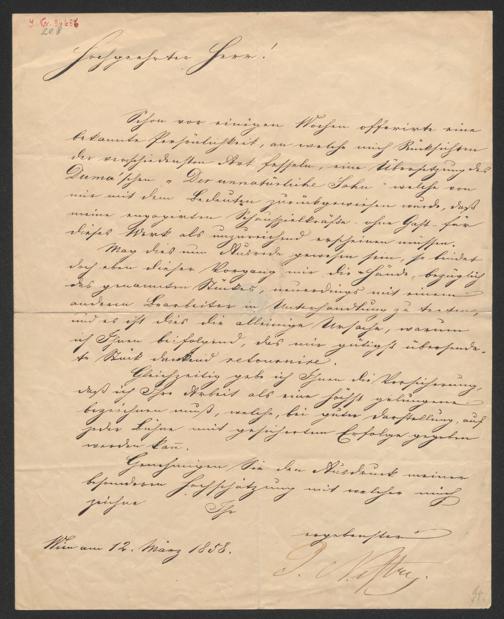 Hochgeehrter Herr!
Schon vor einigen Wochen offerirte eine
bekannte Persönlichkeit, an welche mich Rücksichten
der verschiedensten Art fesseln, eine Übersetzung des
Duma'schen „Der unnatürliche Sohn" welche von
mir mit dem Bedeuten zurückgewiesen wurde, daß
meine engagirten Schauspielkräfte ohne Gast für
dieses Werk als unzureichend erscheinen müssen.
Mag dies nun Ausrede gewesen sein, so bindet
doch eben dieser Vorgang mir die Hände, bezüglich
des genannten Stückes, neuerdings mit einem
anderen Bearbeiter in Unterhandlung zu treten,
und es ist dies die alleinige Ursache, warum
ich Ihnen beifolgend, das mir gütigst übersende-
te Stück dankend retournire.
Gleichzeitig gebe ich Ihnen die Versicherung,
daß ich Ihre Arbeit als eine höchst gelungene
bezeichnen muß, welche, bei guter Darstellung, auf
jeder Bühne mit gesichertem Erfolge gegeben
werden kann.
Genehmigen Sie den Ausdruck meiner
besonderen Hochschätzung mit welcher mich
zeichne Ihr
ergebenster
Wien am 12. März 1858.
J. Nestroy.